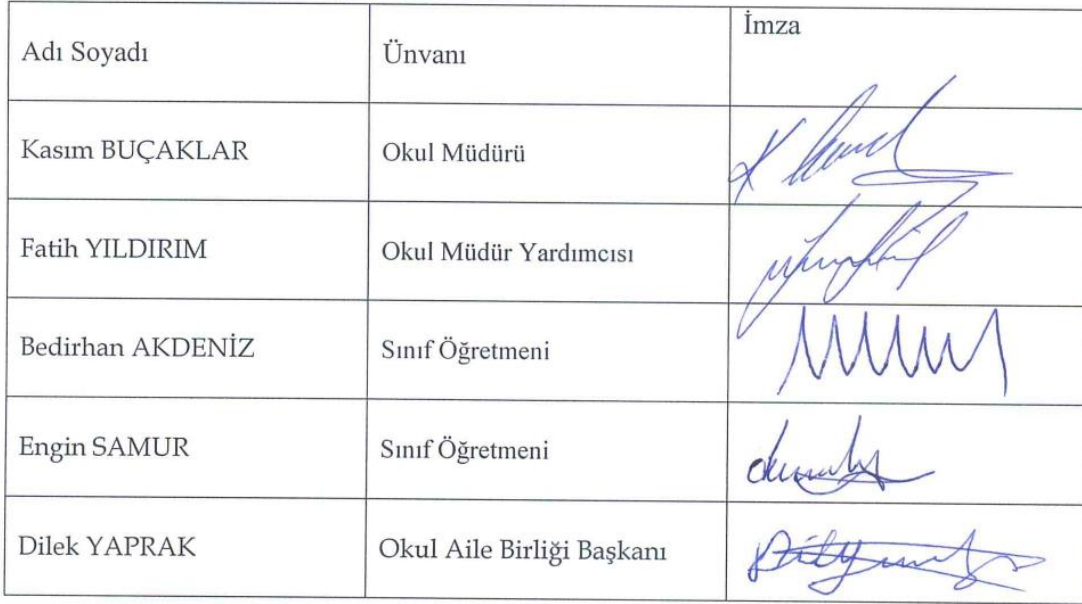 Adı Soyadı Ünvanı İmza
Kasım BUÇAKLAR Okul Müdürü
Fatih YILDIRIM Okul Müdür Yardımcısı
Bedirhan AKDENİZ Sınıf Öğretmeni
Engin SAMUR Sınıf Öğretmeni
Dilek YAPRAK Okul Aile Birliği Başkanı